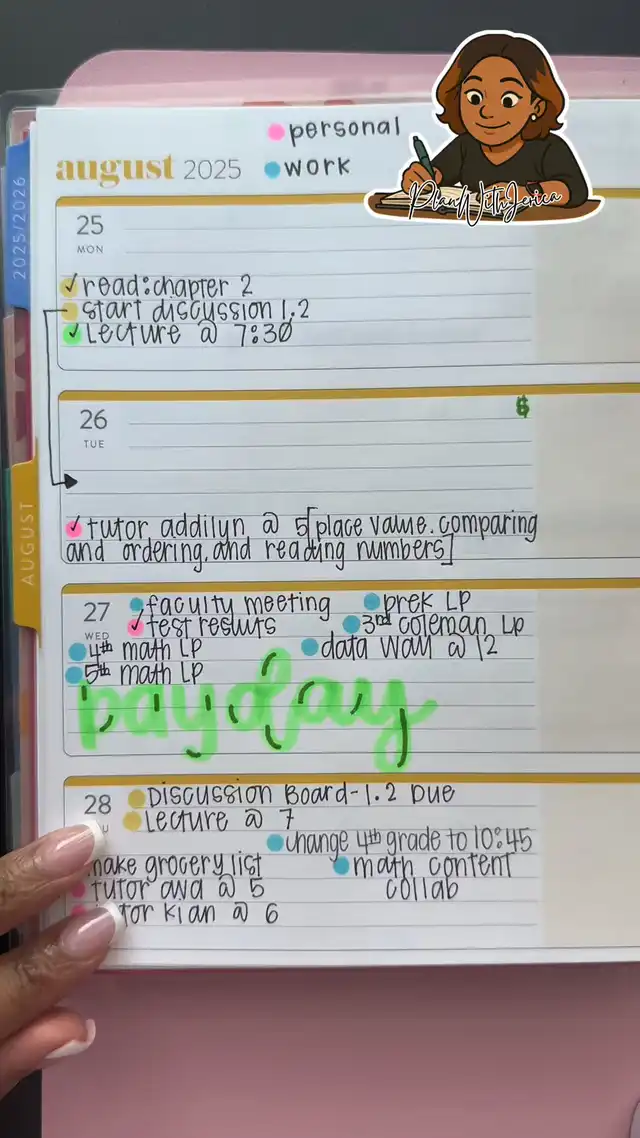 personal
august 2025
work
PlanWithJerica
2025/2026
25
MON
read: chapter 2
start discussion 1.2
Lecture @ 7:30
26
TUE
$
tutor addilyn @ 5 [place value, comparing
and ordering, and reading numbers]
AUGUST
27
WED
faculty meeting
prek LP
test results
3rd coleman LP
4th math LP
data wall @ 12
5th math LP
payday
28
Discussion Board-1.2 Due
Lecture @ 7
change 4th grade to 10:45
make grocery list
math content
collab
tutor ava @ 5
tutor kian @ 6